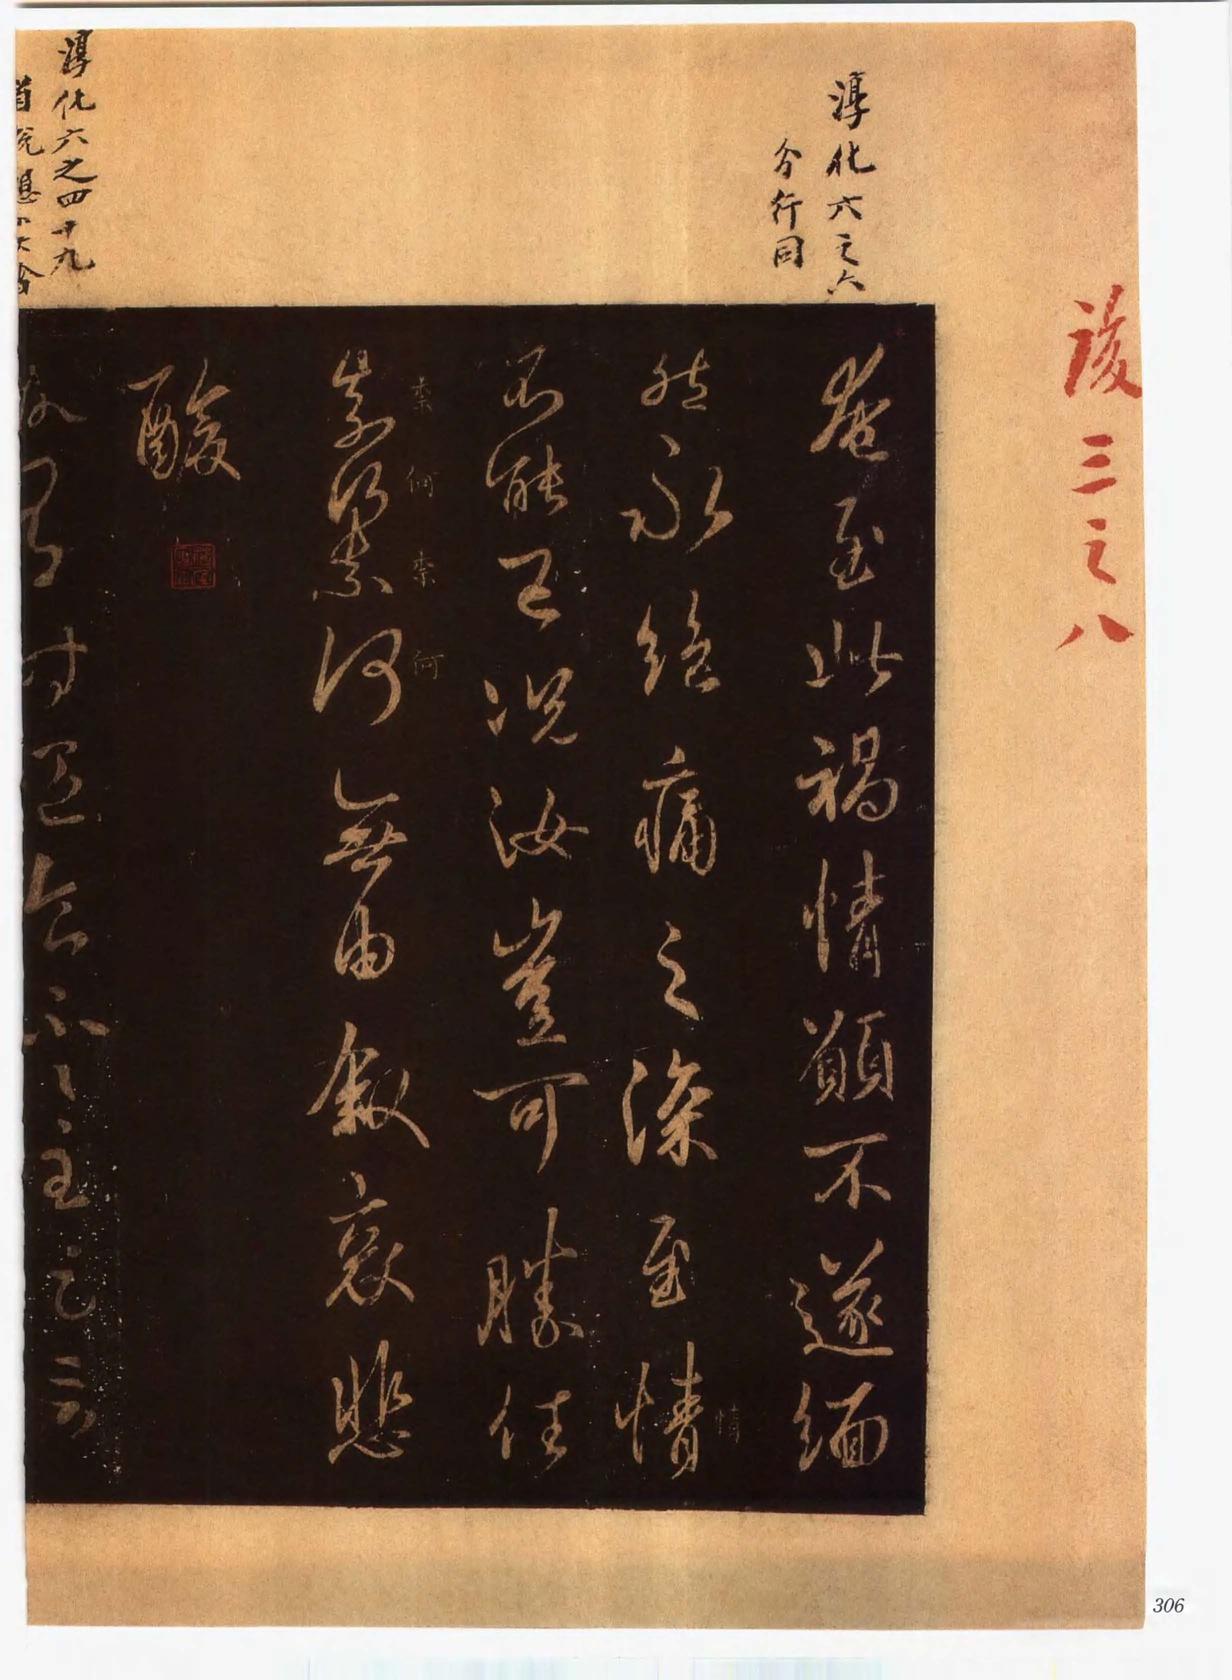 後三之八
淳化六之六
分行同
淳化六之四十九
奄至此禍情願不遂緬
然永絕痛之深至情
情
不能已況汝豈可勝任
奈何奈何無由敘哀悲
奈何奈何
酸
306